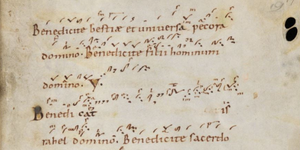 Benedicite bestiæ et universa pecora
domino. Benedicite filii hominum
domino. V.
Benedicat is
rahel domino. Benedicite sacerdo